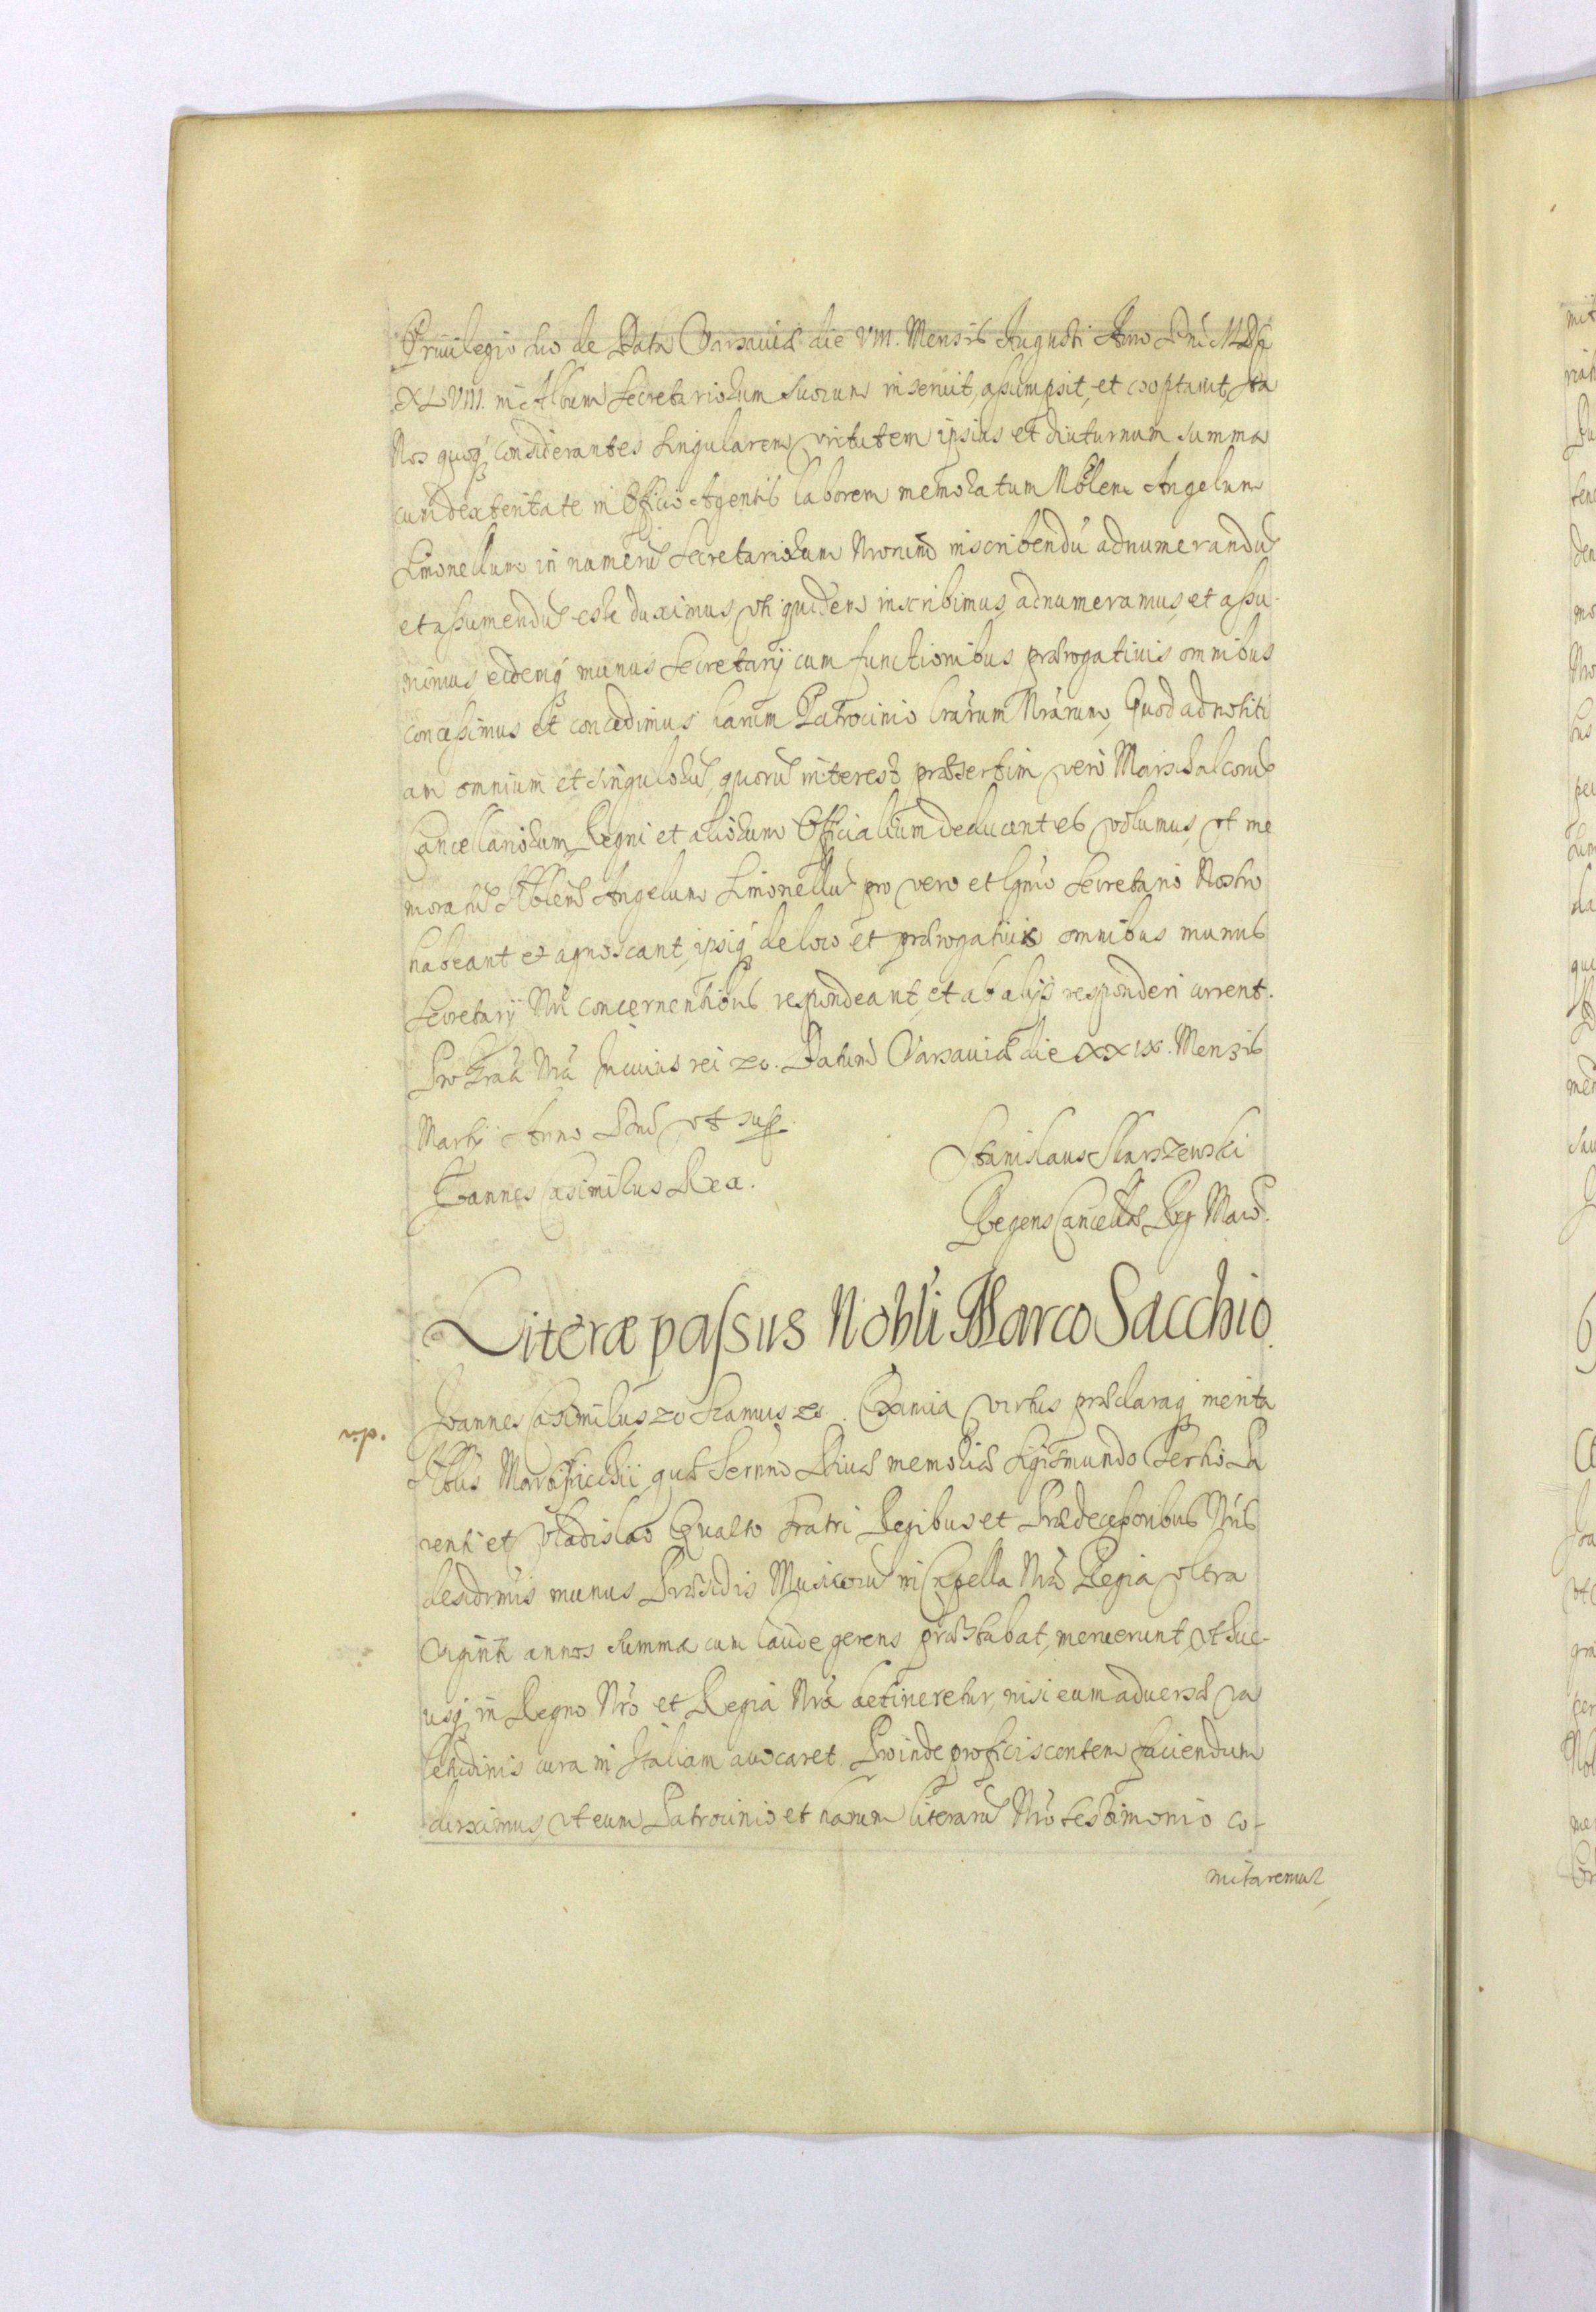 Priuilegio suo de Data Varsauiæ die VIII. Mensis Augusti Anno Dni MDC
XLVIII. in Album Secretariorum suorum inseruit, assumpsit, et cooptauit, Ita
Nos quoq́ considerantes singularem virtutem ipsius et diuturnum summa
cum dexteritate in Officio Agentis laborem memoratum Noblem Angelum
Limonellum in numerū Secretariorum Nrorum inscribendū adnumerandū
et assumendū esse duximus, vti quidem inscribimus, adnumeramus, et assu-
mimus, eidemq́ munus Secretarij cum functionibus prærogatiuis omnibus
concessimus et concedimus harum Patrocinio lrarum Nrarum, Quod ad notiti
am omnium et singulorū, quorū interest præsertim vero Marschalcorum
Cancellariorum Regni et aliorum Officialium deducentes volumus, vt me
moratū Nblem Angelum Limonellū pro vero et lgmo Secretario Nostro
habeant et agnoscant, ipsiq́ de loco et prærogatiuis omnibus munus
Secretarij Nri concernentibus respondeant, et ab alijs responderi curent.
Pro Gratia Nra In cuius rei &c. Datum Varsauiæ die XXIX. Mensis
Martij Anno Dni vt sup.
Ioannes Casimirus Rex.
Stanislaus Skarszewski
Regens Cancellæ Reg Maio.
Literæ passus Nobli Marco Sacchio.
Ioannes Casimirus &c Sĩamus &c. Eximia virtus præclaraq́ merita
Nblis Marci Sacchii, quæ Sermo Diuæ memoriæ Sigismundo Tertio Pa
renti et Vladislao Quarto Fratri Regibus et Prædecessoribus Nris
desidrmis munus Præsidis Musicorū in Capella Nra Regia vltra
Viginti annos summa cum laude gerens præstabat, meruerunt, vt huc-
usq́ in Regno Nro et Regia Nra detineretur, nisi eum aduersæ va
letudinis cura in Italiam auocaret. Proinde proficiscentem faciendum
duximus, vt eum Patrocinio et harum literarū Nro testimonio co-
mitaremur